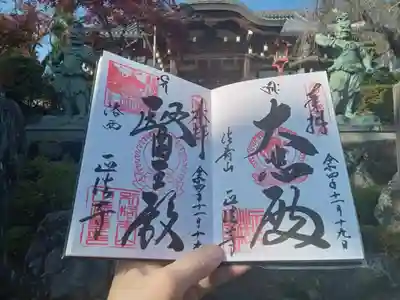 奉拝
令和四年十一月十九日
大悲殿
法寿山 正法寺
奉拝
令和四年十一月十九
醫王殿
洛西 正法寺